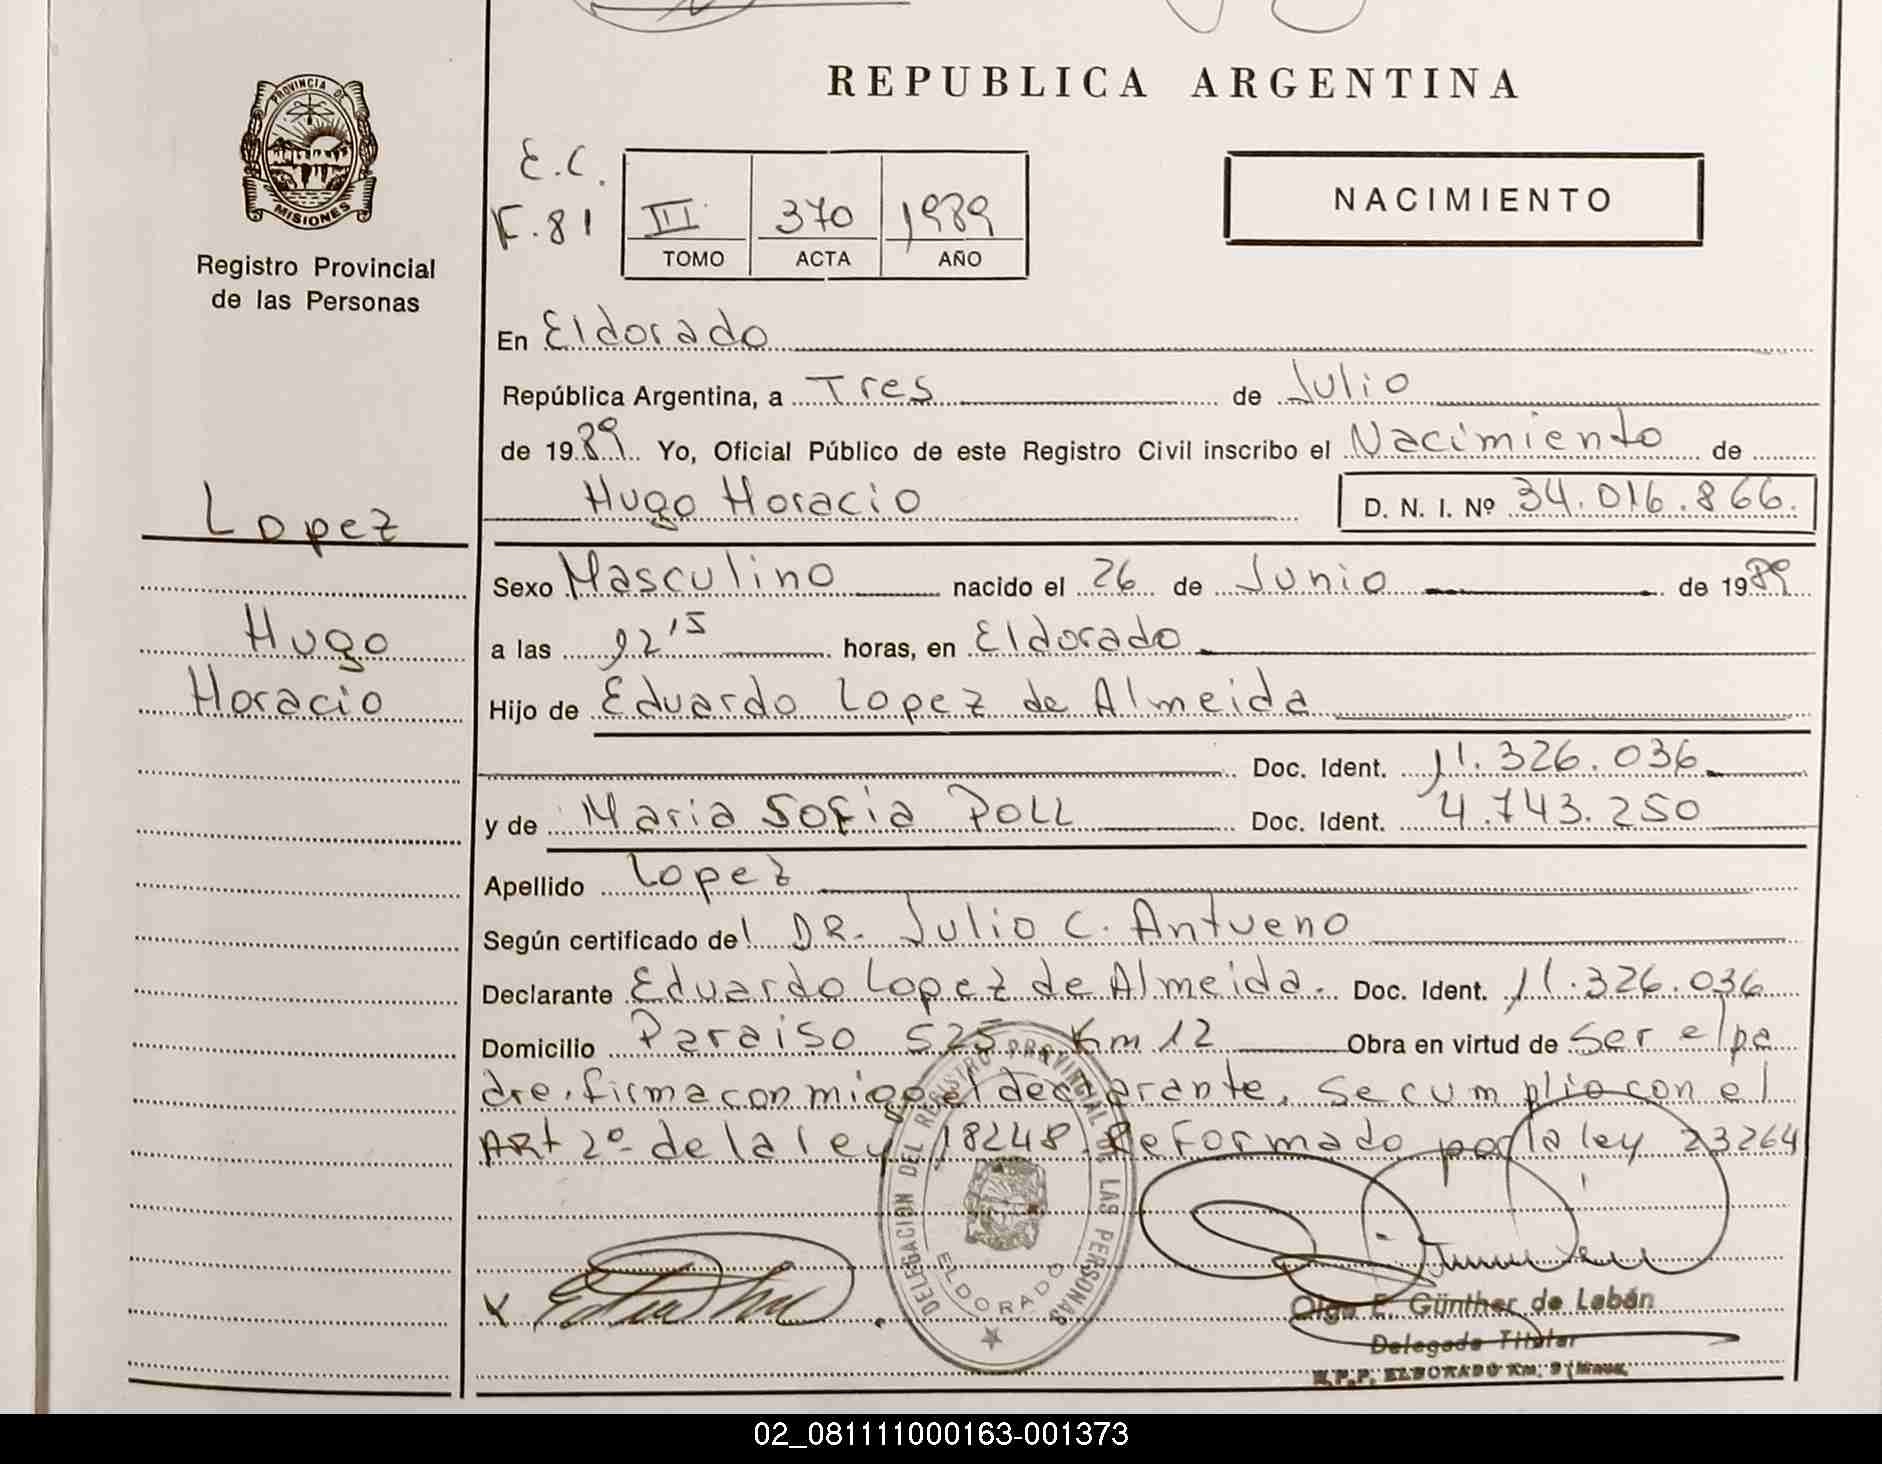 REPUBLICA ARGENTINA
PROVINCIA DE
MISIONES
Registro Provincial
de las Personas
E.C.
F.81
III 370 1989
TOMO ACTA AÑO
NACIMIENTO
En Eldorado
República Argentina, a Tres de Julio
de 1989 Yo, Oficial Público de este Registro Civil inscribo el Nacimiento de
Hugo Horacio D. N. I. Nº 34.016.866.
Lopez
Hugo
Horacio
Sexo Masculino nacido el 26 de Junio de 1989
a las horas, en Eldorado
Hijo de Eduardo Lopez de Almeida
Doc. Ident. 11.326.036
y de Maria Sofia Poll Doc. Ident. 4.743.250
Apellido Lopez
Según certificado del DR. Julio C. Antueno
Declarante Eduardo Lopez de Almeida. Doc. Ident. 11.326.036
Domicilio Paraiso 525 Km 12 Obra en virtud de Ser el pa
dre. firma con migo el declarante. Se cumplio con el
ARt 2º de la ley 18248. Reformado por la ley 23264
DELEGACION DEL REGISTRO PROVINCIAL DE LAS PERSONAS
ELDORADO
Olga E. Günther de Labán
Delegada Titular
R.P.P. ELDORADO Km. 9 (Mnes.
02_081111000163-001373